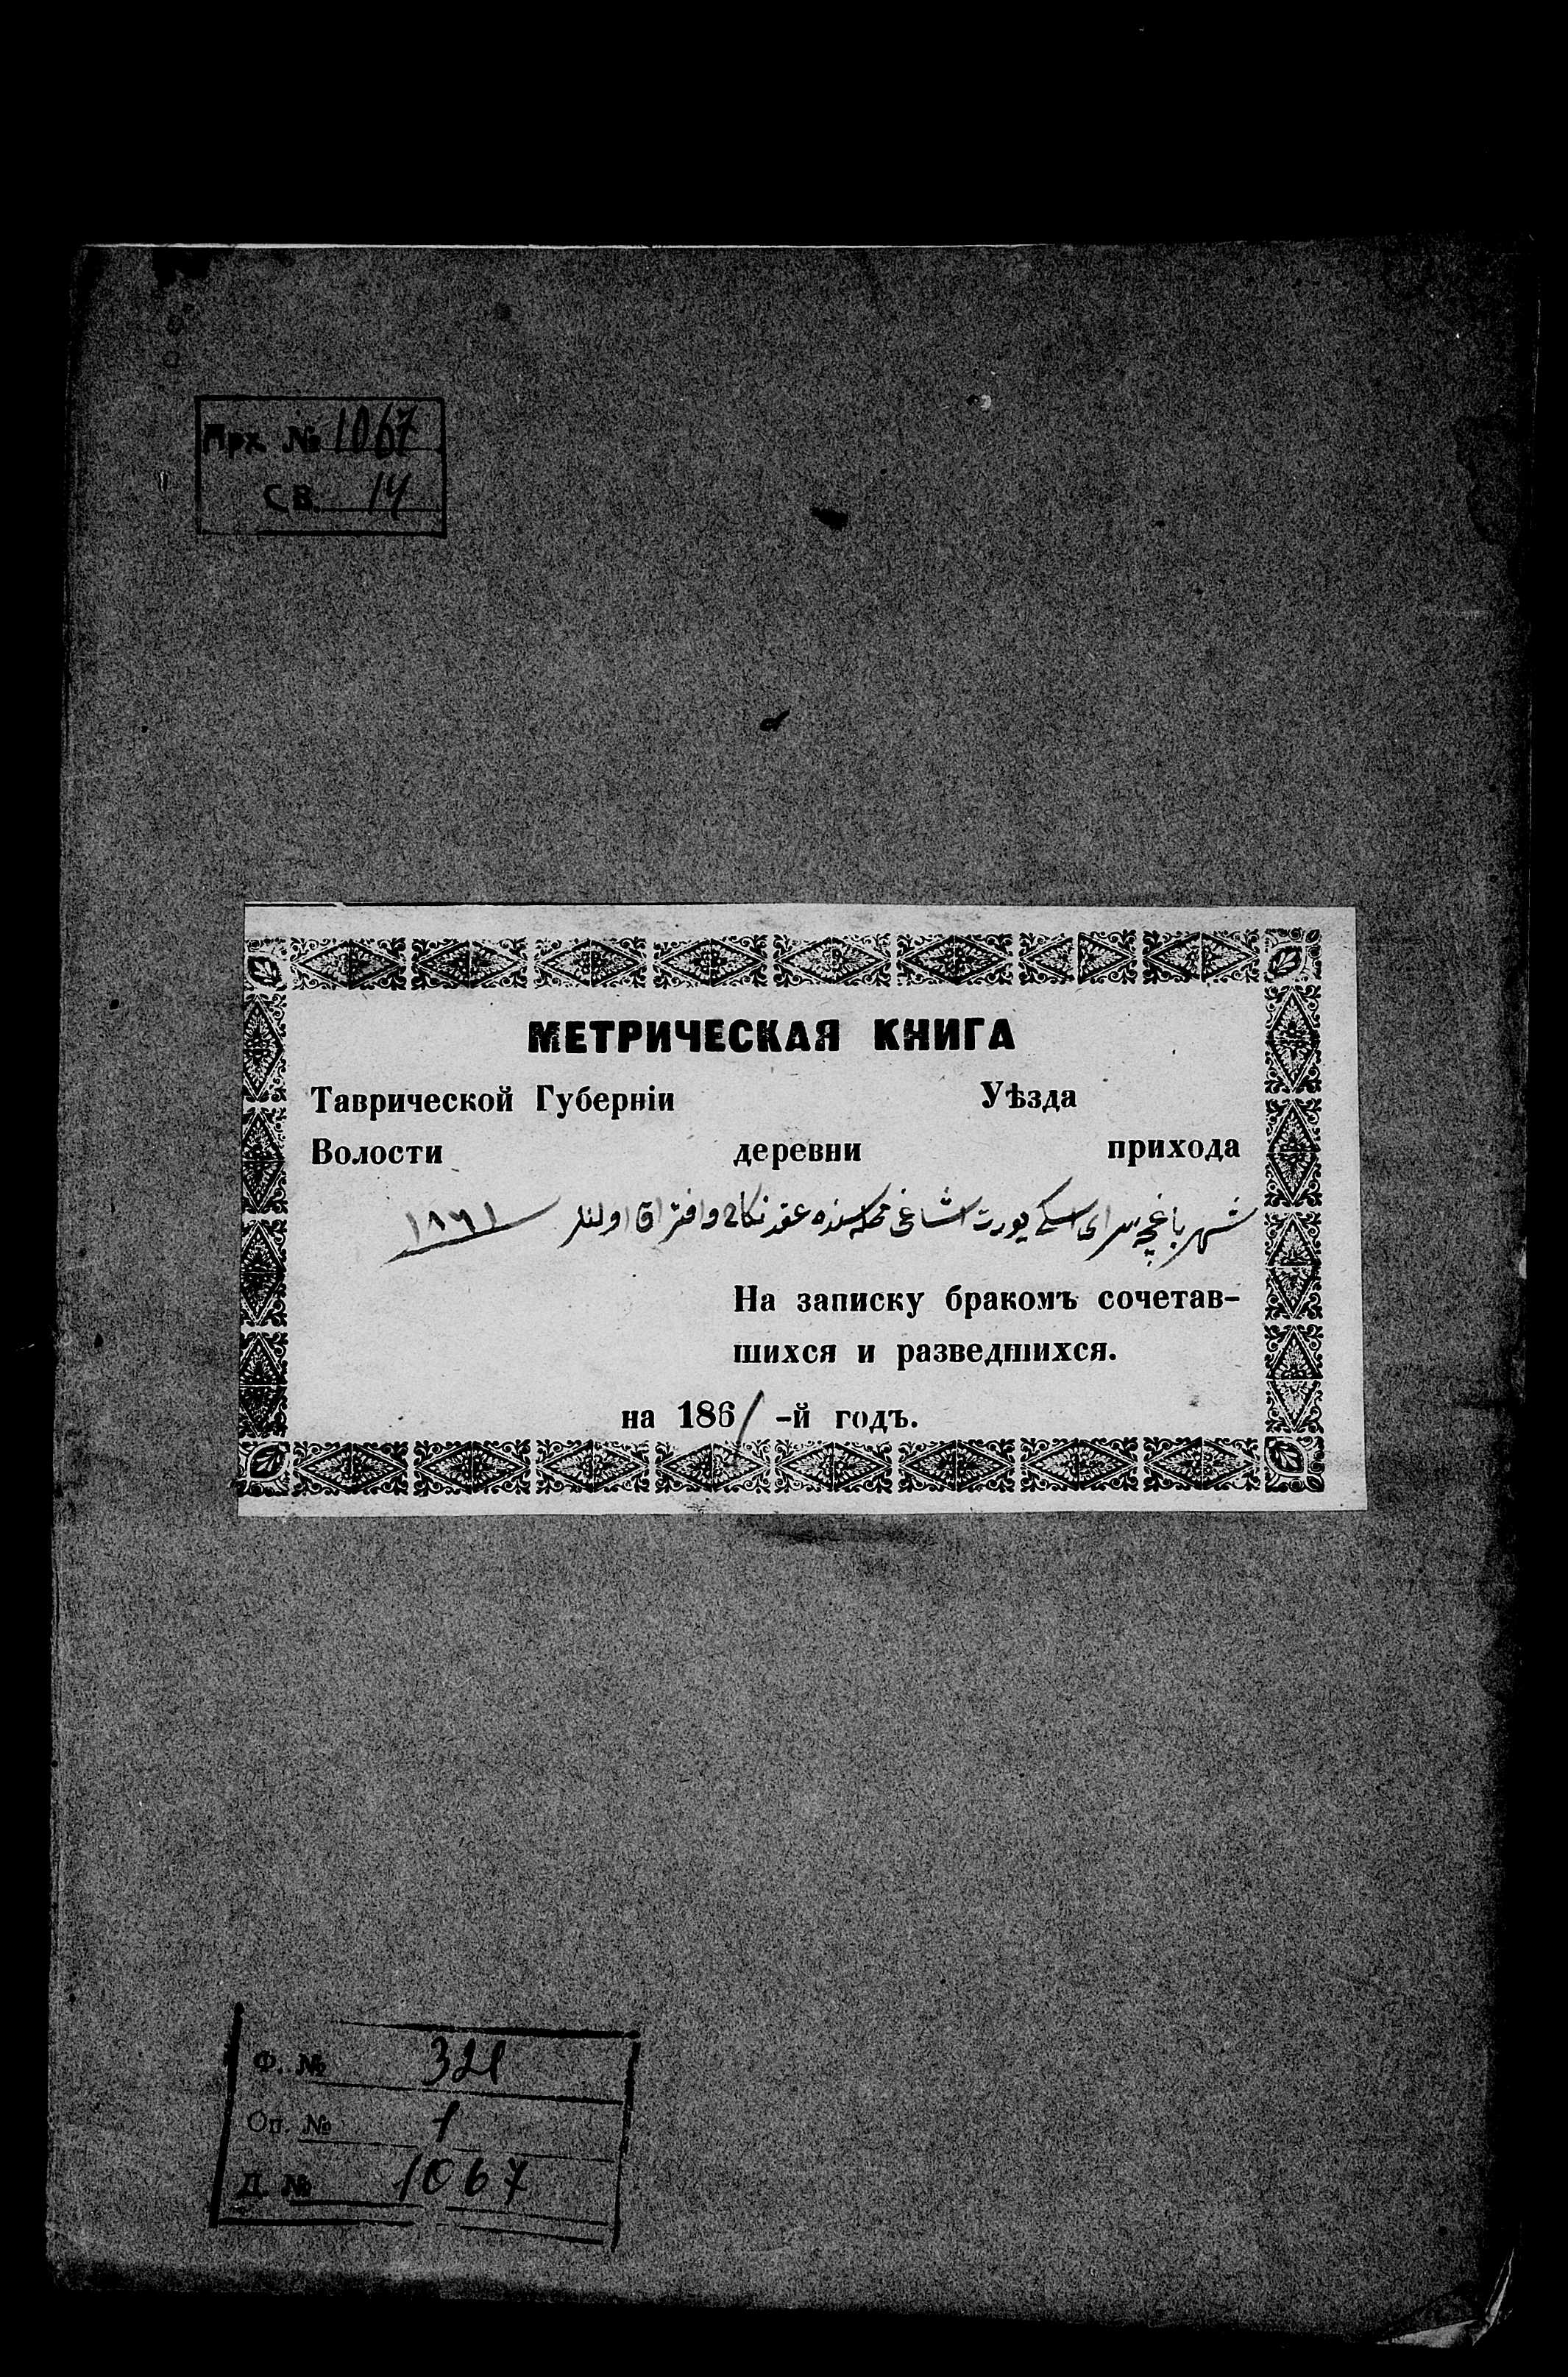 Арх. № 1067
СВ. 14
МЕТРИЧЕСКАЯ КНИГА
Таврической Губерніи Уѣзда
Волости деревни прихода
شهر باغچه سرای اسكی يورت اشاغی محله سنده عقد نكاح وافتراق اولنلر ١٨٦١
На записку бракомъ сочетав-
шихся и разведшихся.
на 1861-й годъ.
Ф. № 321
Оп. № 1
Д. № 1067